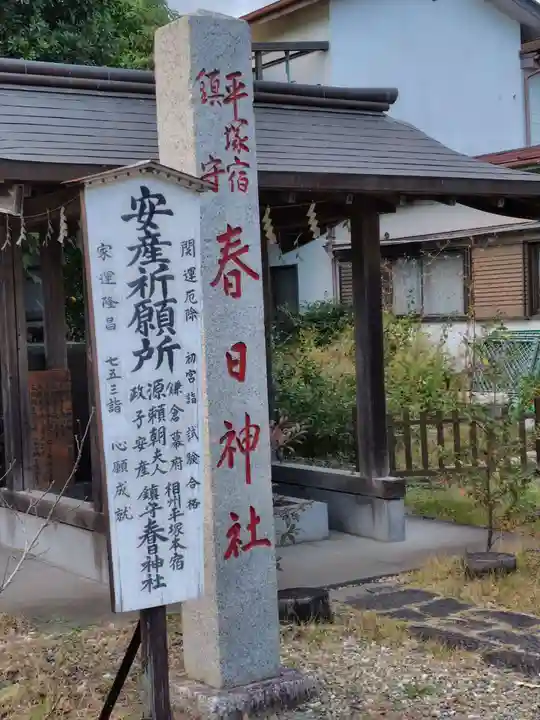 平塚宿
鎮守
春日神社
開運厄除　初宮詣　試験合格
安産祈願所
鎌倉幕府
源頼朝夫人
政子安産
相州平塚本宿
鎮守春日神社
家運隆昌　七五三詣　心願成就